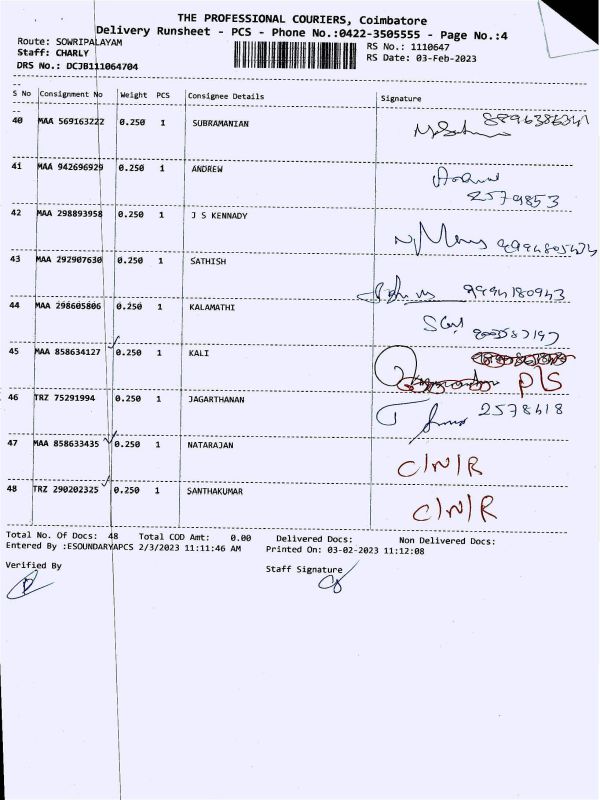 THE PROFESSIONAL COURIERS, Coimbatore
Delivery Runsheet - PCS - Phone No.:0422-3505555 - Page No.:4
Route: SOWRIPALAYAM
Staff: CHARLY
DRS No.: DCJB111064704
RS No.: 1110647
RS Date: 03-Feb-2023
S No Consignment No Weight PCS Consignee Details Signature
40 MAA 569163222 0.250 1 SUBRAMANIAN
41 MAA 942696929 0.250 1 ANDREW
2579853
42 MAA 298893958 0.250 1 J S KENNADY
43 MAA 292907630 0.250 1 SATHISH
9994180943
44 MAA 298605806 0.250 1 KALAMATHI
45 MAA 858634127 0.250 1 KALI
P/S
46 TRZ 75291994 0.250 1 JAGARTHANAN
2578618
47 MAA 858633435 0.250 1 NATARAJAN
C/N/R
48 TRZ 290202325 0.250 1 SANTHAKUMAR
C/N/R
Total No. Of Docs: 48 Total COD Amt: 0.00 Delivered Docs: Non Delivered Docs:
Entered By :ESOUNDARYAPCS 2/3/2023 11:11:46 AM Printed On: 03-02-2023 11:12:08
Verified By
Staff Signature